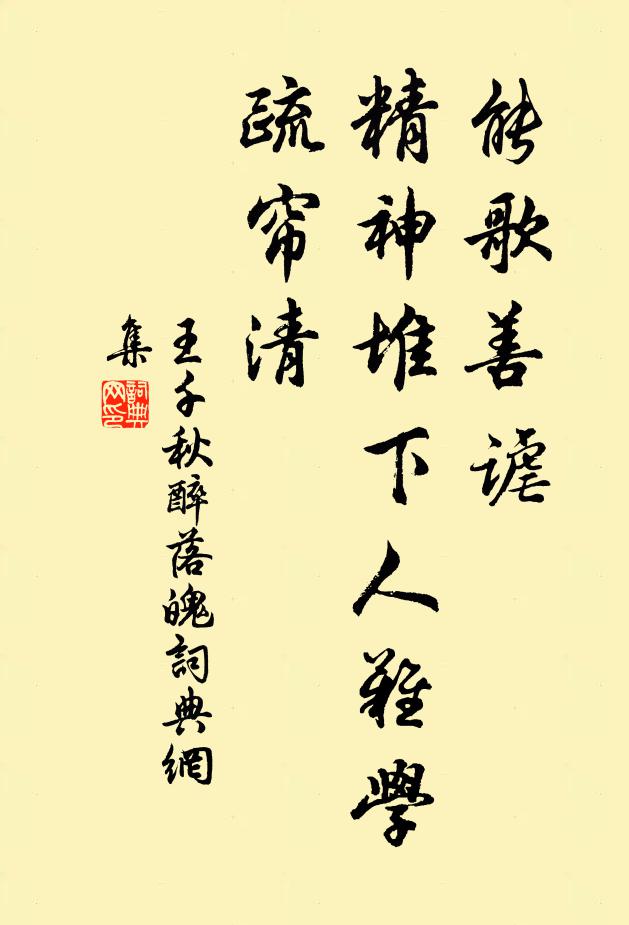 能歌善謔
精神堆下人難學
疏帘清
王千秋醉落魄詞典網
集
詞典
网印